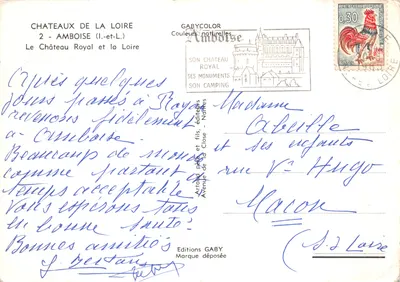 CHATEAUX DE LA LOIRE
2 - AMBOISE (I.-et-L.)
Le Château Royal et la Loire
GABYCOLOR
Couleurs naturelles
Amboise
SON CHATEAU
ROYAL
SES MONUMENTS
SON CAMPING
0,30
Après quelques
jours passés à Royan
revenons fidèlement
à Amboise
Beaucoup de monde
comme partout et
temps acceptable
Vous espérons tous
en bonne santé
Bonnes amitiés
Editions GABY
Marque déposée
Madame
Abeille
et ses enfants
rue Vor Hugo
Macon
(S. & Loire)